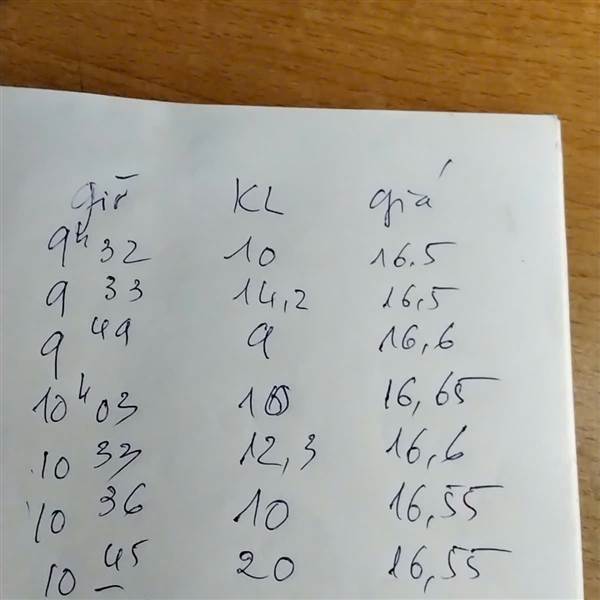 giờ KL giá
9h32 10 16.5
9 33 14,2 16,5
9 49 9 16,6
10h03 16,65
10 33 12,3 16,6
10 36 10 16,55
10 45 20 16,55